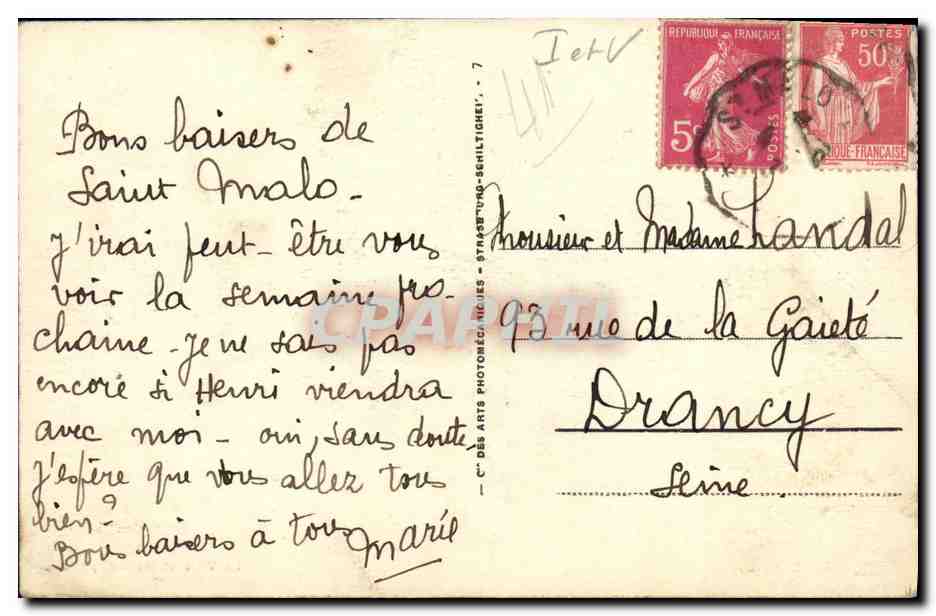 Bons baisers de
Saint Malo -
J'irai peut-être vous
voir la semaine pro-
chaine - Je ne sais pas
encore si Henri viendra
avec moi - oui, sans doute,
J'espère que vous allez tous
bien ?
Bons baisers à tous
Marie
Cie DES ARTS PHOTOMÉCANIQUES - STRASBOURG-SCHILTIGHEIM - 7
I et V
RÉPUBLIQUE FRANÇAISE
5c
POSTES
POSTES
50c
QUE-FRANÇAISE
ST MALO
Monsieur et Madame Landal
93 rue de la Gaieté
Drancy
Seine.
CPAPHIL